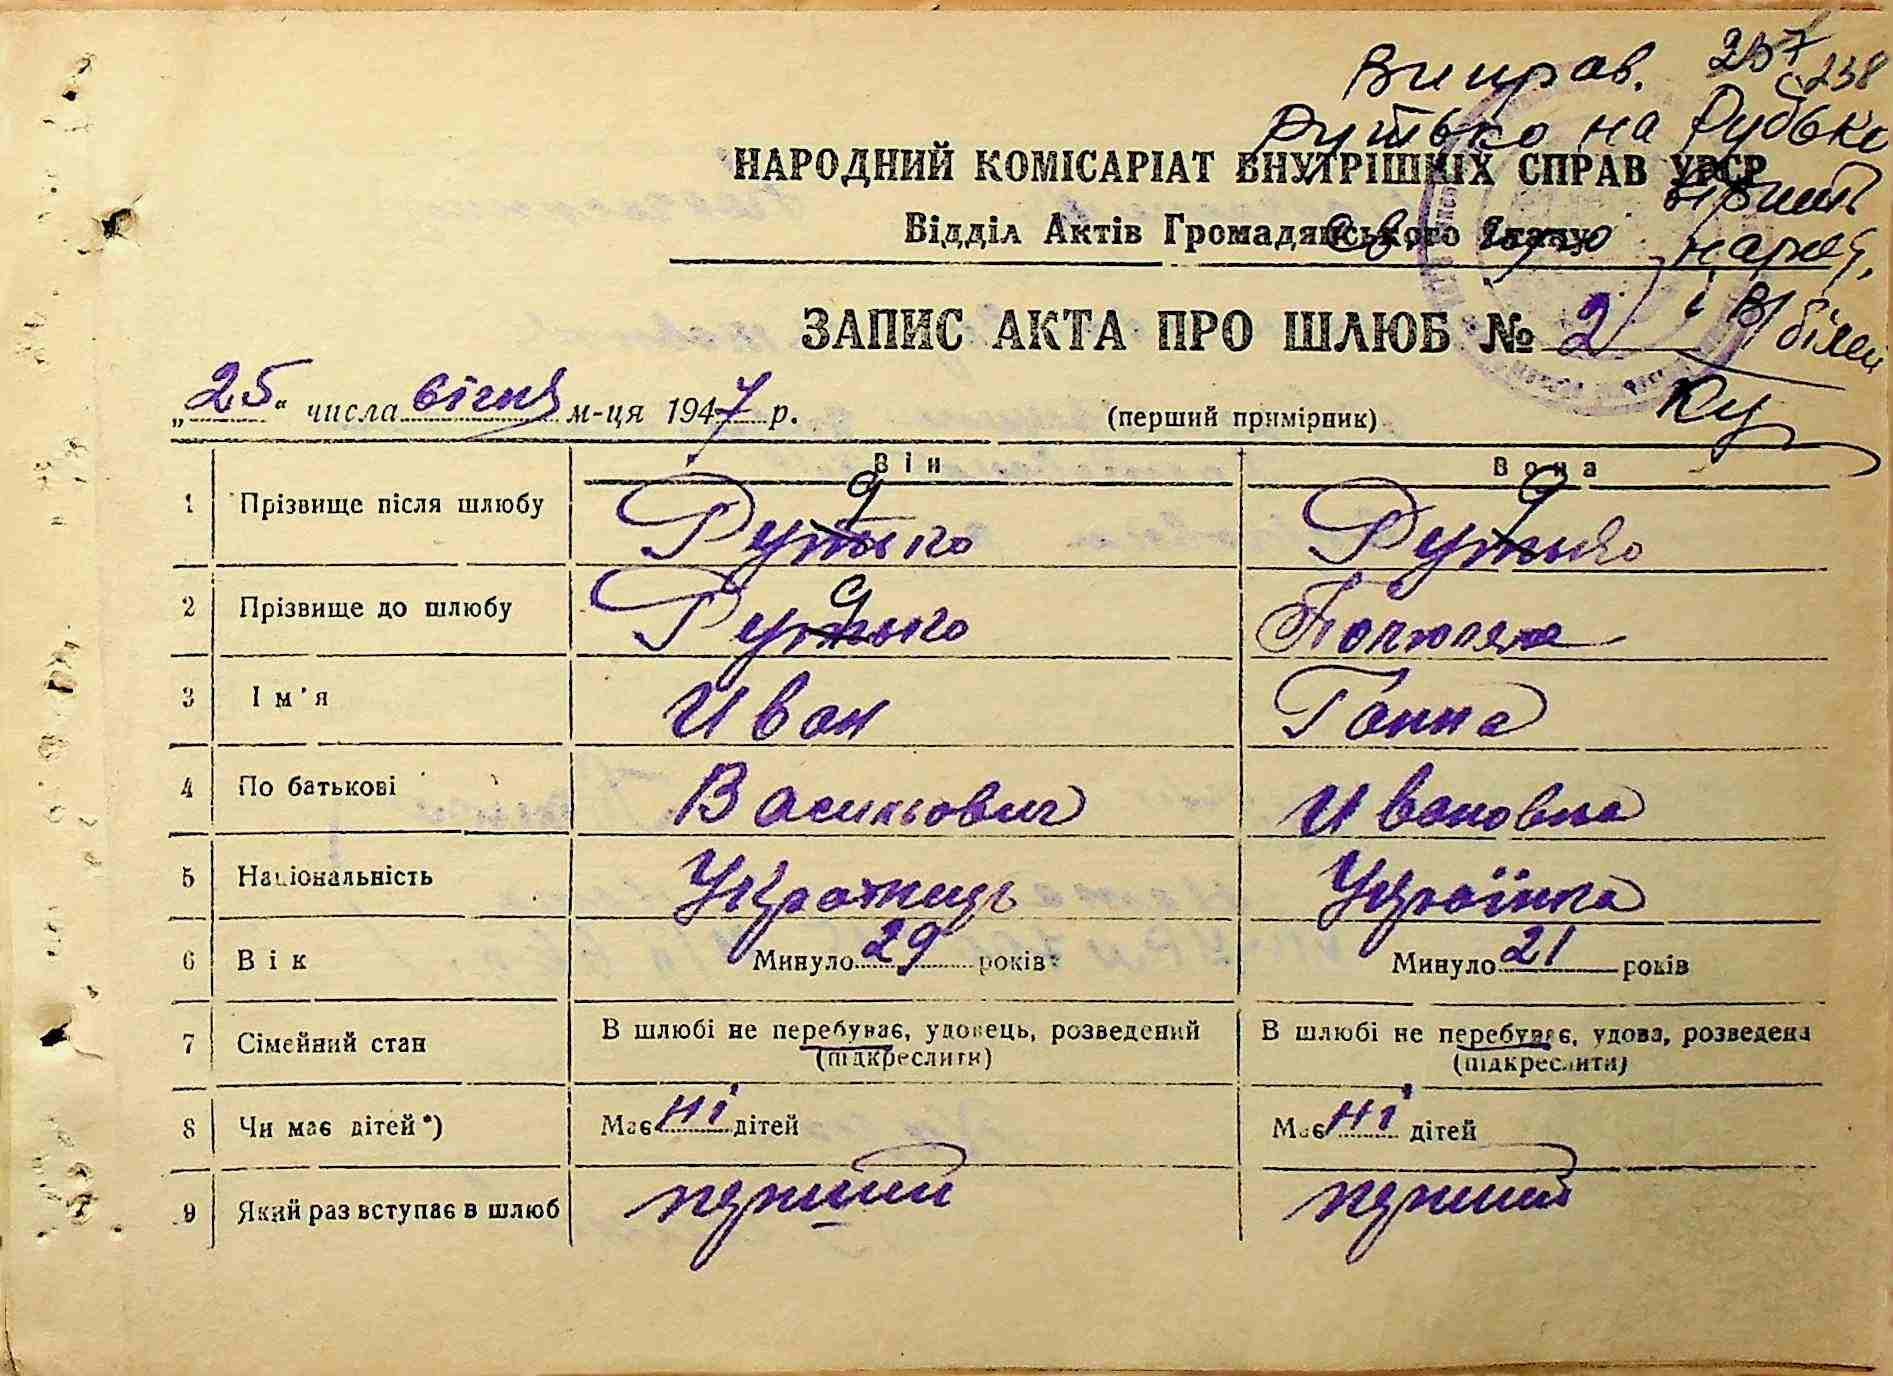 237
238
Виправ.
Рутько на Рудько
НАРОДНИЙ КОМІСАРІАТ ВНУТРІШНІХ СПРАВ УРСР
Відділ Актів Громадянського Стану
ЗАПИС АКТА ПРО ШЛЮБ № 2
„25“ числа січня м-ця 1947 р.
(перший примірник)
Він Вона
1 Прізвище після шлюбу Рудько Рудько
2 Прізвище до шлюбу Рудько
3 Ім'я Иван Ганна
4 По батькові Васильович Ивановна
5 Національність Українець Українка
6 Вік Минуло 29 років Минуло 21 років
7 Сімейний стан В шлюбі не перебуває, удовець, розведений В шлюбі не перебуває, удова, розведена
(підкреслити) (підкреслити)
8 Чи має дітей*) Має ні дітей Має ні дітей
9 Який раз вступає в шлюб перший перший